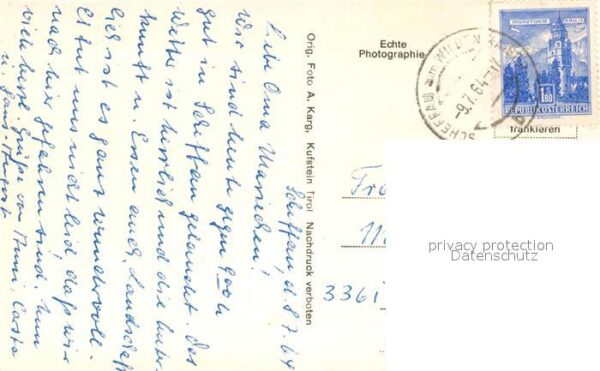 Scheffau, d. 8.7.64
Liebe Oma Mariechen!
Wir sind heute gegen 9 00 h
gut in Scheffau gelandet. Das
Wetter ist herrlich und die Unter-
kunft u. Essen auch. Landschaft-
lich ist es ganz wundervoll.
Es tut uns nicht leid, daß wir
nach hier gefahren sind. Nun
viele herzl. Grüße von
u. Hans-August
Orig. Foto A. Karg, Kufstein Tirol Nachdruck verboten
Echte
Photographie
SCHEFFAU am WILDEN KAISER
-9.7.64
1S80
REPUBLIK ÖSTERREICH
frankieren
336
privacy protection
Datenschutz